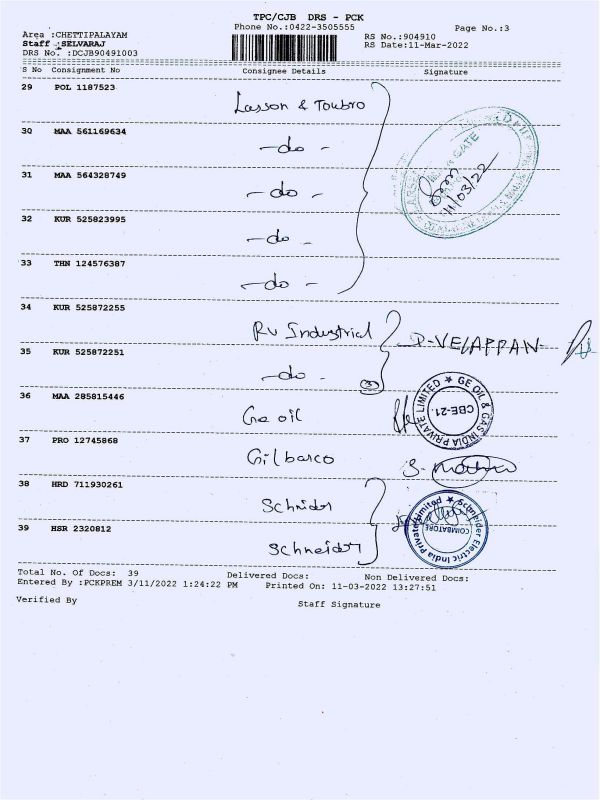 TPC/CJB DRS - PCK
Phone No.:0422-3505555
Page No.:3
Area :CHETTIPALAYAM
RS No.:904910
Staff :SELVARAJ
RS Date:11-Mar-2022
DRS No. :DCJB90491003
S No Consignment No Consignee Details Signature
29 POL 1187523 Lasson & Toubro
30 MAA 561169634 -do-
31 MAA 564328749 -do-
11/03/22
32 KUR 525823995 -do-
33 THN 124576387 -do-
34 KUR 525872255 RV Industrial D-VELAPPAN-
35 KUR 525872251 -do-
36 MAA 285815446 Ge oil
GE OIL & GAS INDIA PRIVATE LIMITED ★
CBE-21.
37 PRO 12745868 Gilbarco
38 HRD 711930261 Schnider
39 HSR 2320812 Schneider
Schneider Electric India Private Limited ★
COIMBATORE
Total No. Of Docs: 39 Delivered Docs: Non Delivered Docs:
Entered By :PCKPREM 3/11/2022 1:24:22 PM Printed On: 11-03-2022 13:27:51
Verified By Staff Signature